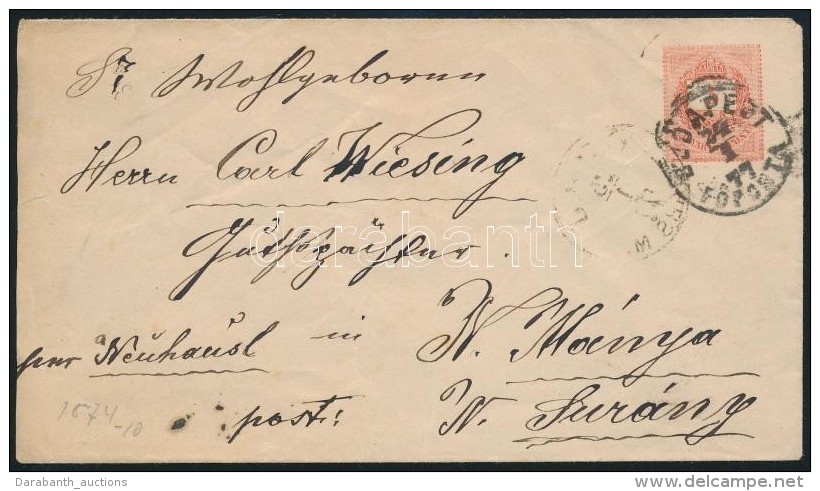 Sr Wohlgeboren
Herrn Carl Wiesing
Gutspächter.
in N. Mánya
per Neuhäusl
post: N. Surány
1874
-10
BUDAPEST
77
darabanth
Darabanth_auctions
delcampe.net